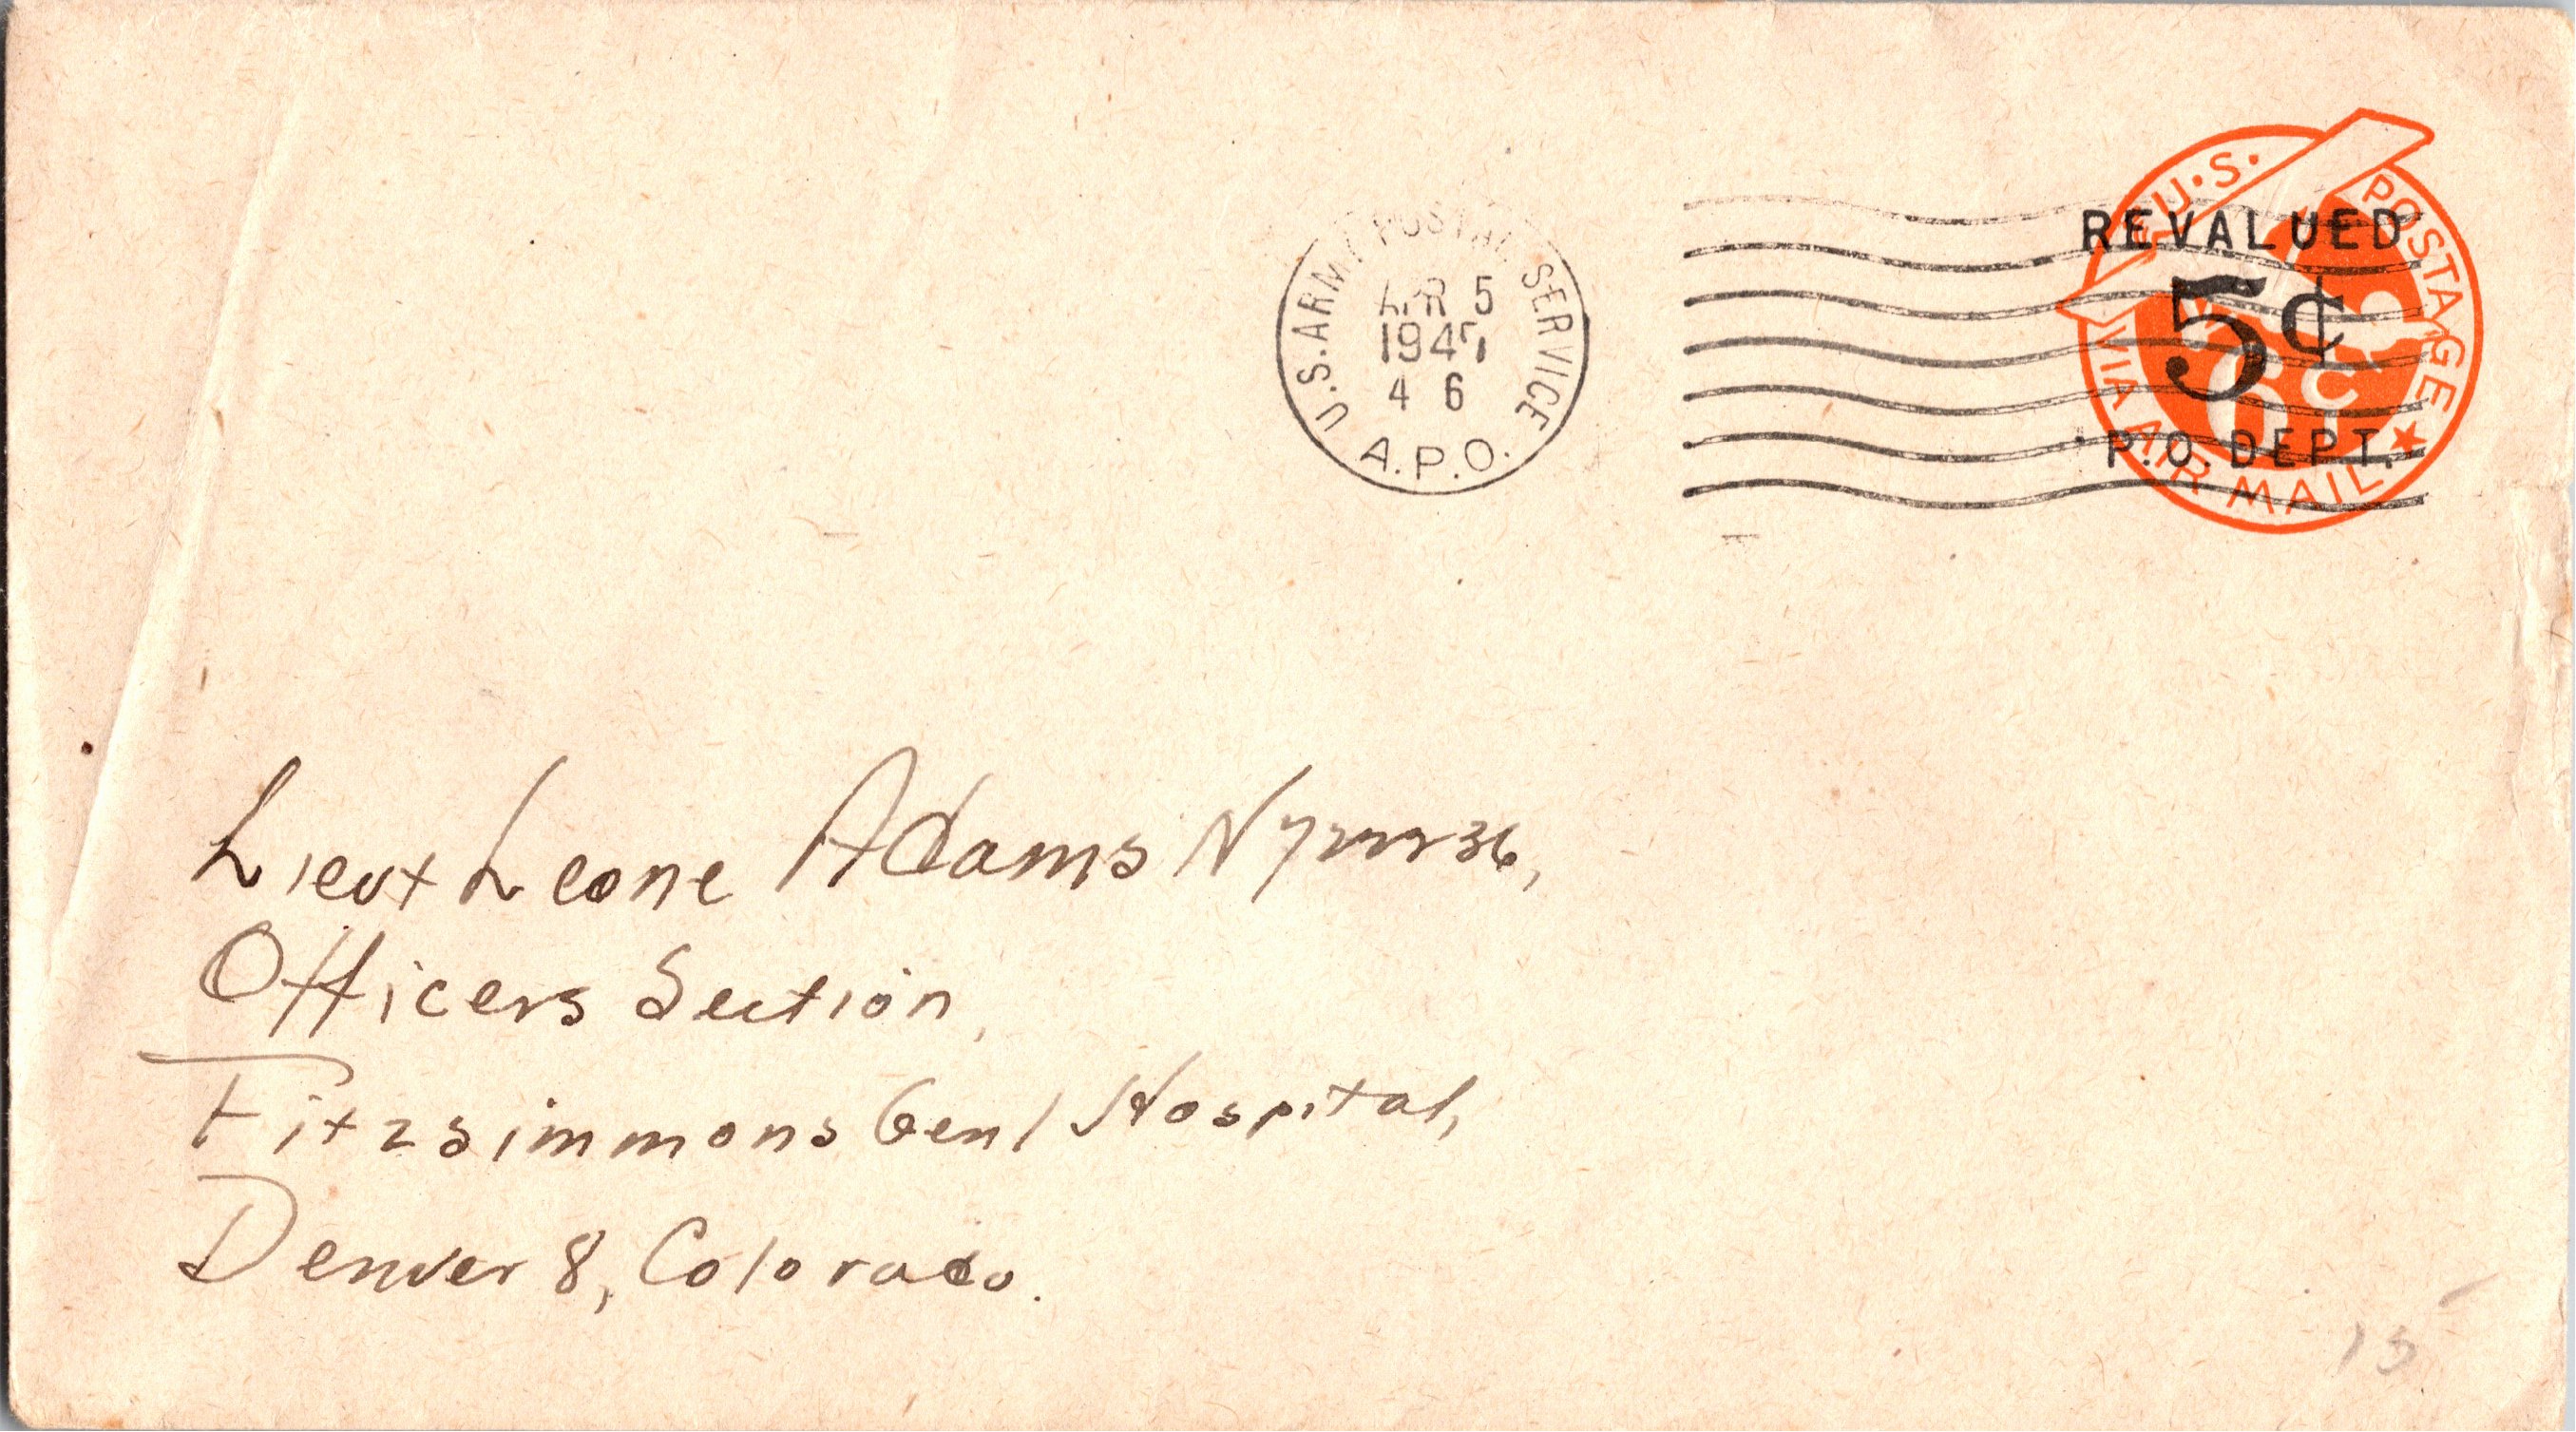 U.S. ARMY POSTAL SERVICE
APR 5
1947
4 6
A.P.O.
U.S. POSTAGE
VIA AIR MAIL
6c
REVALUED
5¢
P.O. DEPT.
Lieut Leone Adams N722236,
Officers Section,
Fitzsimmons Genl Hospital,
Denver 8, Colorado.
15